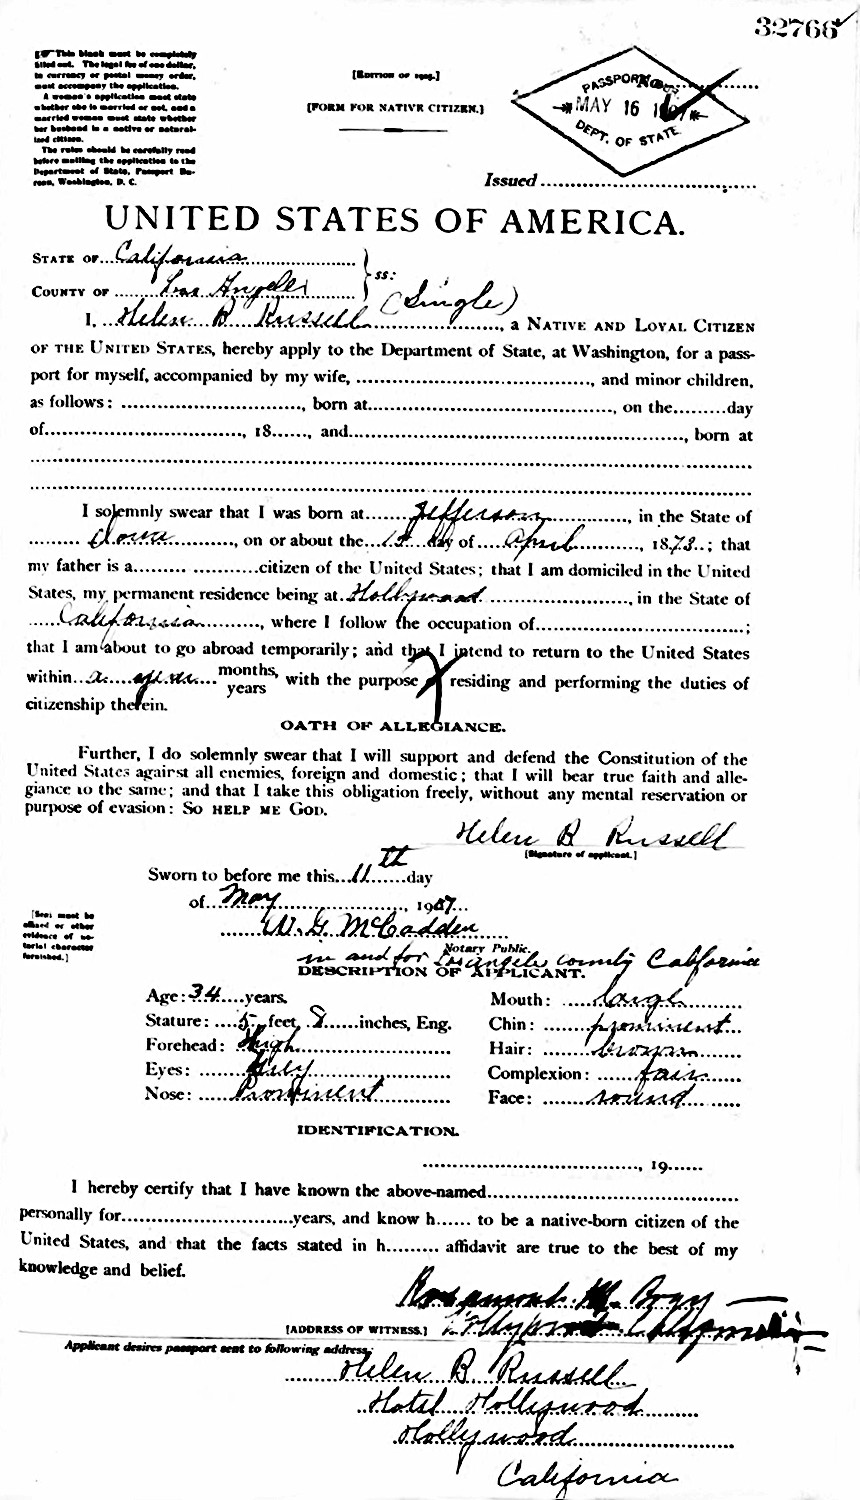 32766
[☞ This blank must be completely
filled out. The legal fee of one dollar,
in currency or postal money order,
must accompany the application.
A woman's application must state
whether she is married or not, and a
married woman must state whether
her husband is a native or natural-
ized citizen.
The rules should be carefully read
before mailing the application to the
Department of State, Passport Bu-
reau, Washington, D. C.
[EDITION OF 1905.]
[FORM FOR NATIVE CITIZEN.]
PASSPORT BUR.
MAY 16 1907
DEPT. OF STATE.
Issued
UNITED STATES OF AMERICA.
STATE OF California
COUNTY OF Los Angeles } ss:
(Single)
I, Helen B Russell, a NATIVE AND LOYAL CITIZEN
OF THE UNITED STATES, hereby apply to the Department of State, at Washington, for a pass-
port for myself, accompanied by my wife, ..., and minor children,
as follows: ..., born at ..., on the ... day
of ..., 18..., and ..., born at
I solemnly swear that I was born at Jefferson, in the State of
Iowa, on or about the 15 day of April, 1873; that
my father is a ... citizen of the United States; that I am domiciled in the United
States, my permanent residence being at Hollywood, in the State of
California, where I follow the occupation of ...;
that I am about to go abroad temporarily; and that I intend to return to the United States
within a year months, years with the purpose of residing and performing the duties of
citizenship therein.
OATH OF ALLEGIANCE.
Further, I do solemnly swear that I will support and defend the Constitution of the
United States against all enemies, foreign and domestic; that I will bear true faith and alle-
giance to the same; and that I take this obligation freely, without any mental reservation or
purpose of evasion: SO HELP ME GOD.
Helen B Russell
[Signature of applicant.]
Sworn to before me this 11th day
of May, 1907
W. G. McCadden
Notary Public.
in and for Los Angeles county California
[Seal must be
affixed or other
evidence of no-
tarial character
furnished.]
DESCRIPTION OF APPLICANT.
Age: 34 years. Mouth: large
Stature: 5 feet, 8 inches, Eng. Chin: prominent
Forehead: High Hair: brown
Eyes: Grey Complexion: fair
Nose: Prominent Face: round
IDENTIFICATION.
, 19
I hereby certify that I have known the above-named
personally for ... years, and know h... to be a native-born citizen of the
United States, and that the facts stated in h... affidavit are true to the best of my
knowledge and belief.
Rosamond M. Bogy
[ADDRESS OF WITNESS.] Hollywood California
Applicant desires passport sent to following address:
Helen B Russell
Hotel Hollywood
Hollywood
California